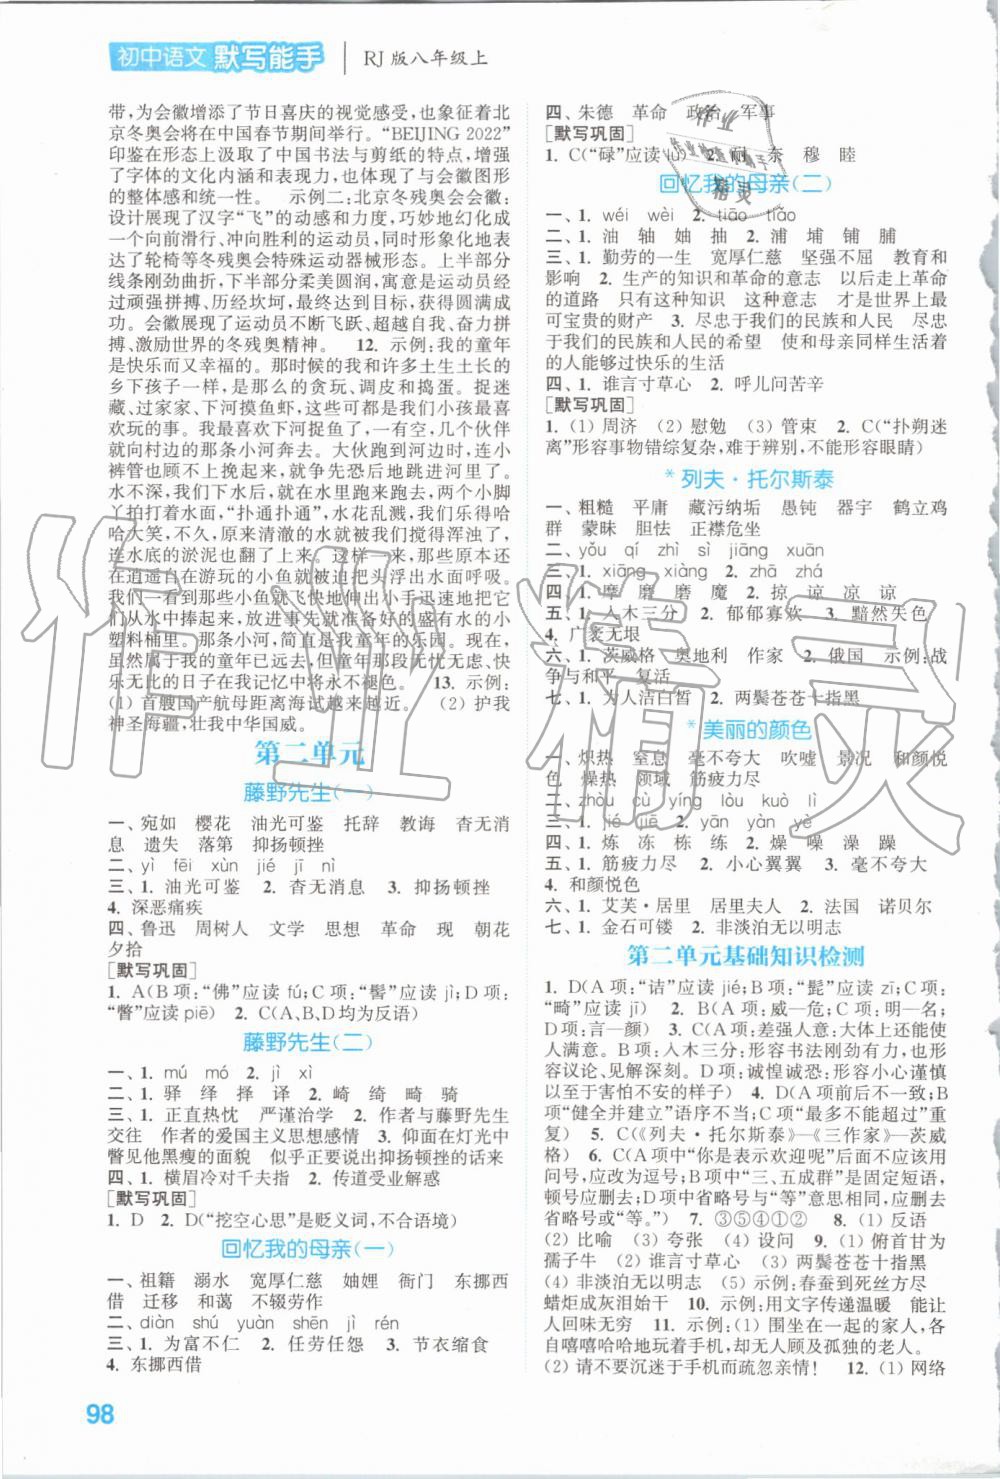 初中语文 默写能手 RJ 版八年级上
带,为会徽增添了节日喜庆的视觉感受,也象征着北
京冬奥会将在中国春节期间举行。“BEIJING 2022”
印鉴在形态上汲取了中国书法与剪纸的特点,增强
了字体的文化内涵和表现力,也体现了与会徽图形
的整体感和统一性。 示例二:北京冬残奥会会徽:
设计展现了汉字“飞”的动感和力度,巧妙地幻化成一
个向前滑行、冲向胜利的运动员,同时形象化地表
达了轮椅等冬残奥会特殊运动器械形态。上半部分
线条刚劲曲折,下半部分柔美圆润,寓意运动员经过
顽强拼搏、历经坎坷,最终达到目标,获得圆满成
功。会徽展现了运动员不断飞跃、超越自我、奋力拼
搏、激励世界的冬残奥精神。 12. 示例:我的童年
是快乐而又幸福的。那时候的我和许多土生土长的
乡下孩子一样,是那么的贪玩、调皮和捣蛋。捉迷
藏、过家家、下河摸鱼虾,这些可都是我们小孩最喜
欢玩的事。我最喜欢下河捉鱼了。一次,几个伙伴
就约我去村里的小河奔去。大伙跑到河边时,连
裤管也顾不上挽起,就争先恐后地跳进河里。
水不深,我们就在水里跑来跑去,两个小脚
丫拍打着水面,“扑通扑通”,水花乱溅,我们乐得哈
哈大笑,不一会,原本清澈的水就被我们搅得浑浊了,
连水底的淤泥也翻了上来。这下可好,那些原本还
在逍遥自在游玩的小鱼就把头浮出水面呼吸。
我们趁着这些小鱼急飞快地伸出小手迅速地把它们
从水中捧起来,放进事先就准备好的盛有水的小
塑料桶里。那条小河,简直是我童年的乐园。现在,
虽然属于我的童年已远去,但童年那段无忧无虑、
快乐无比的日子在我记忆中将永不褪色。 13. 示例:
(1) 首艘国产航母距离海试越来越近。 (2) 护我
神圣海疆,壮我中华国威。
第二单元
藤野先生(一)
一、宛如 樱花 油光可鉴 托辞 教诲 杳无消
息 遗失 落第 抑扬顿挫
二、yì fēi xùn jié jī nì
三、1. 油光可鉴 2. 杳无消息 3. 抑扬顿挫
4. 深恶痛疾
四、鲁迅 周树人 文学 思想 革命 现 朝花
夕拾
[默写巩固]
1. A(B项:“佛”应读fú;C项:“髻”应读jì;D项:
“瞥”应读piē) 2. C(A、B、D均为反语)
藤野先生(二)
一、1. mú mó 2. jì xì
二、1. 驿 绎 择 译 2. 崎 绮 畸 骑
三、1. 正直热忱 严谨治学 2. 作者与藤野先生
交往 作者的爱国主义思想感情 3. 仰面在灯光中
瞥见他黑瘦的面貌 似乎正要说出抑扬顿挫的话来
四、1. 横眉冷对千夫指 2. 传道受业解惑
[默写巩固]
1. D 2. D(“挖空心思”是贬义词,不合语境)
回忆我的母亲(一)
一、祖籍 溺水 宽厚仁慈 妯娌 衙门 东挪西
借 迁移 和蔼 不辍劳作
二、diàn shú yuàn shēn jì rén
三、1. 为富不仁 2. 任劳任怨 3. 节衣缩食
4. 东挪西借
四、朱德 革命 政治 军事
[默写巩固]
1. C(“碌”应读lù) 2. 耐 奈 穆 睦
回忆我的母亲(二)
一、1. wéi wèi 2. tiāo tiǎo
二、1. 油 轴 妯 抽 2. 浦 埔 铺 脯
三、1. 勤劳的一生 宽厚仁慈 坚强不屈 教育和
影响 2. 生产的知识和革命的意志 以后走上革命
的道路 只有这种知识 这种意志 才是世界上最
可宝贵的财产 3. 尽忠于我们的民族和人民 尽忠
于我们的民族和人民的希望 使和母亲同样生活着
的人能够过快乐的生活
四、1. 谁言寸草心 2. 呼儿问苦辛
[默写巩固]
1. (1) 周济 (2) 慰勉 (3) 管束 2. C(“扑朔迷
离”形容事物错综复杂,难于辨别,不能形容眼睛)
* 列夫·托尔斯泰
一、粗糙 平庸 藏污纳垢 愚钝 器宇 鹤立鸡
群 蒙昧 胆怯 正襟危坐
二、yǒu qí zhì sì jiāng xuān
三、1. xiāng xiàng 2. zhā zhá
四、1. 摩 磨 磨 魔 2. 掠 谅 凉 谅
五、1. 入木三分 2. 郁郁寡欢 3. 黯然失色
4. 广袤无垠
六、1. 茨威格 奥地利 作家 2. 俄国 示例:战
争与和平 复活
七、1. 为人洁白皙 2. 两鬓苍苍十指黑
* 美丽的颜色
一、炽热 窒息 毫不夸大 吹嘘 景况 和颜悦
色 燥热 领域 筋疲力尽
二、zhòu cù yíng lòu kuò lì
三、1. jié jiē 2. yān yàn yè
四、1. 炼 冻 栋 练 2. 燥 噪 澡 躁
五、1. 筋疲力尽 2. 小心翼翼 3. 毫不夸大
4. 和颜悦色
六、1. 艾芙·居里 居里夫人 2. 法国 诺贝尔
七、1. 金石可镂 2. 非淡泊无以明志
第二单元基础知识检测
1. D(A项:“诘”应读jié;B项:“髭”应读zī;C项:
“畸”应读jī) 2. B(A项:威—危;C项:明—名;
D项:言—颜) 3. C(A项:差强人意:大体上还能使
人满意。B项:入木三分:形容书法刚劲有力,也形
容议论、见解深刻。D项:诚惶诚恐:形容小心谨慎
以至于害怕不安的样子) 4. D(A项前后不一致;B
项“健全并建立”语序不当;C项“最多不能超过”重
复) 5. C(《列夫·托尔斯泰》—《三作家》—茨威
格) 6. C(A项中“你是表示欢迎呢”后面不应该用
问号,应改为逗号;B项中“三、五成群”是固定短语,
顿号应删去;D项中省略号与“等”意思相同,应删去
省略号或“等。”) 7. ③⑤④①② 8. (1) 反语
(2) 比喻 (3) 夸张 (4) 设问 9. (1) 俯首甘为
孺子牛 (2) 谁言寸草心 (3) 两鬓苍苍十指黑
(4) 非淡泊无以明志 (5) 示例:春蚕到死丝方尽
蜡炬成灰泪始干 10. 示例:用文字传递温暖 能让
人回味无穷 11. 示例:(1) 围坐在一起的家人,各
自嘻嘻哈哈地玩着手机,却无人顾及孤独的老人。
(2) 请不要沉迷于手机而疏忽亲情! 12. (1) 网络
98
作业精灵